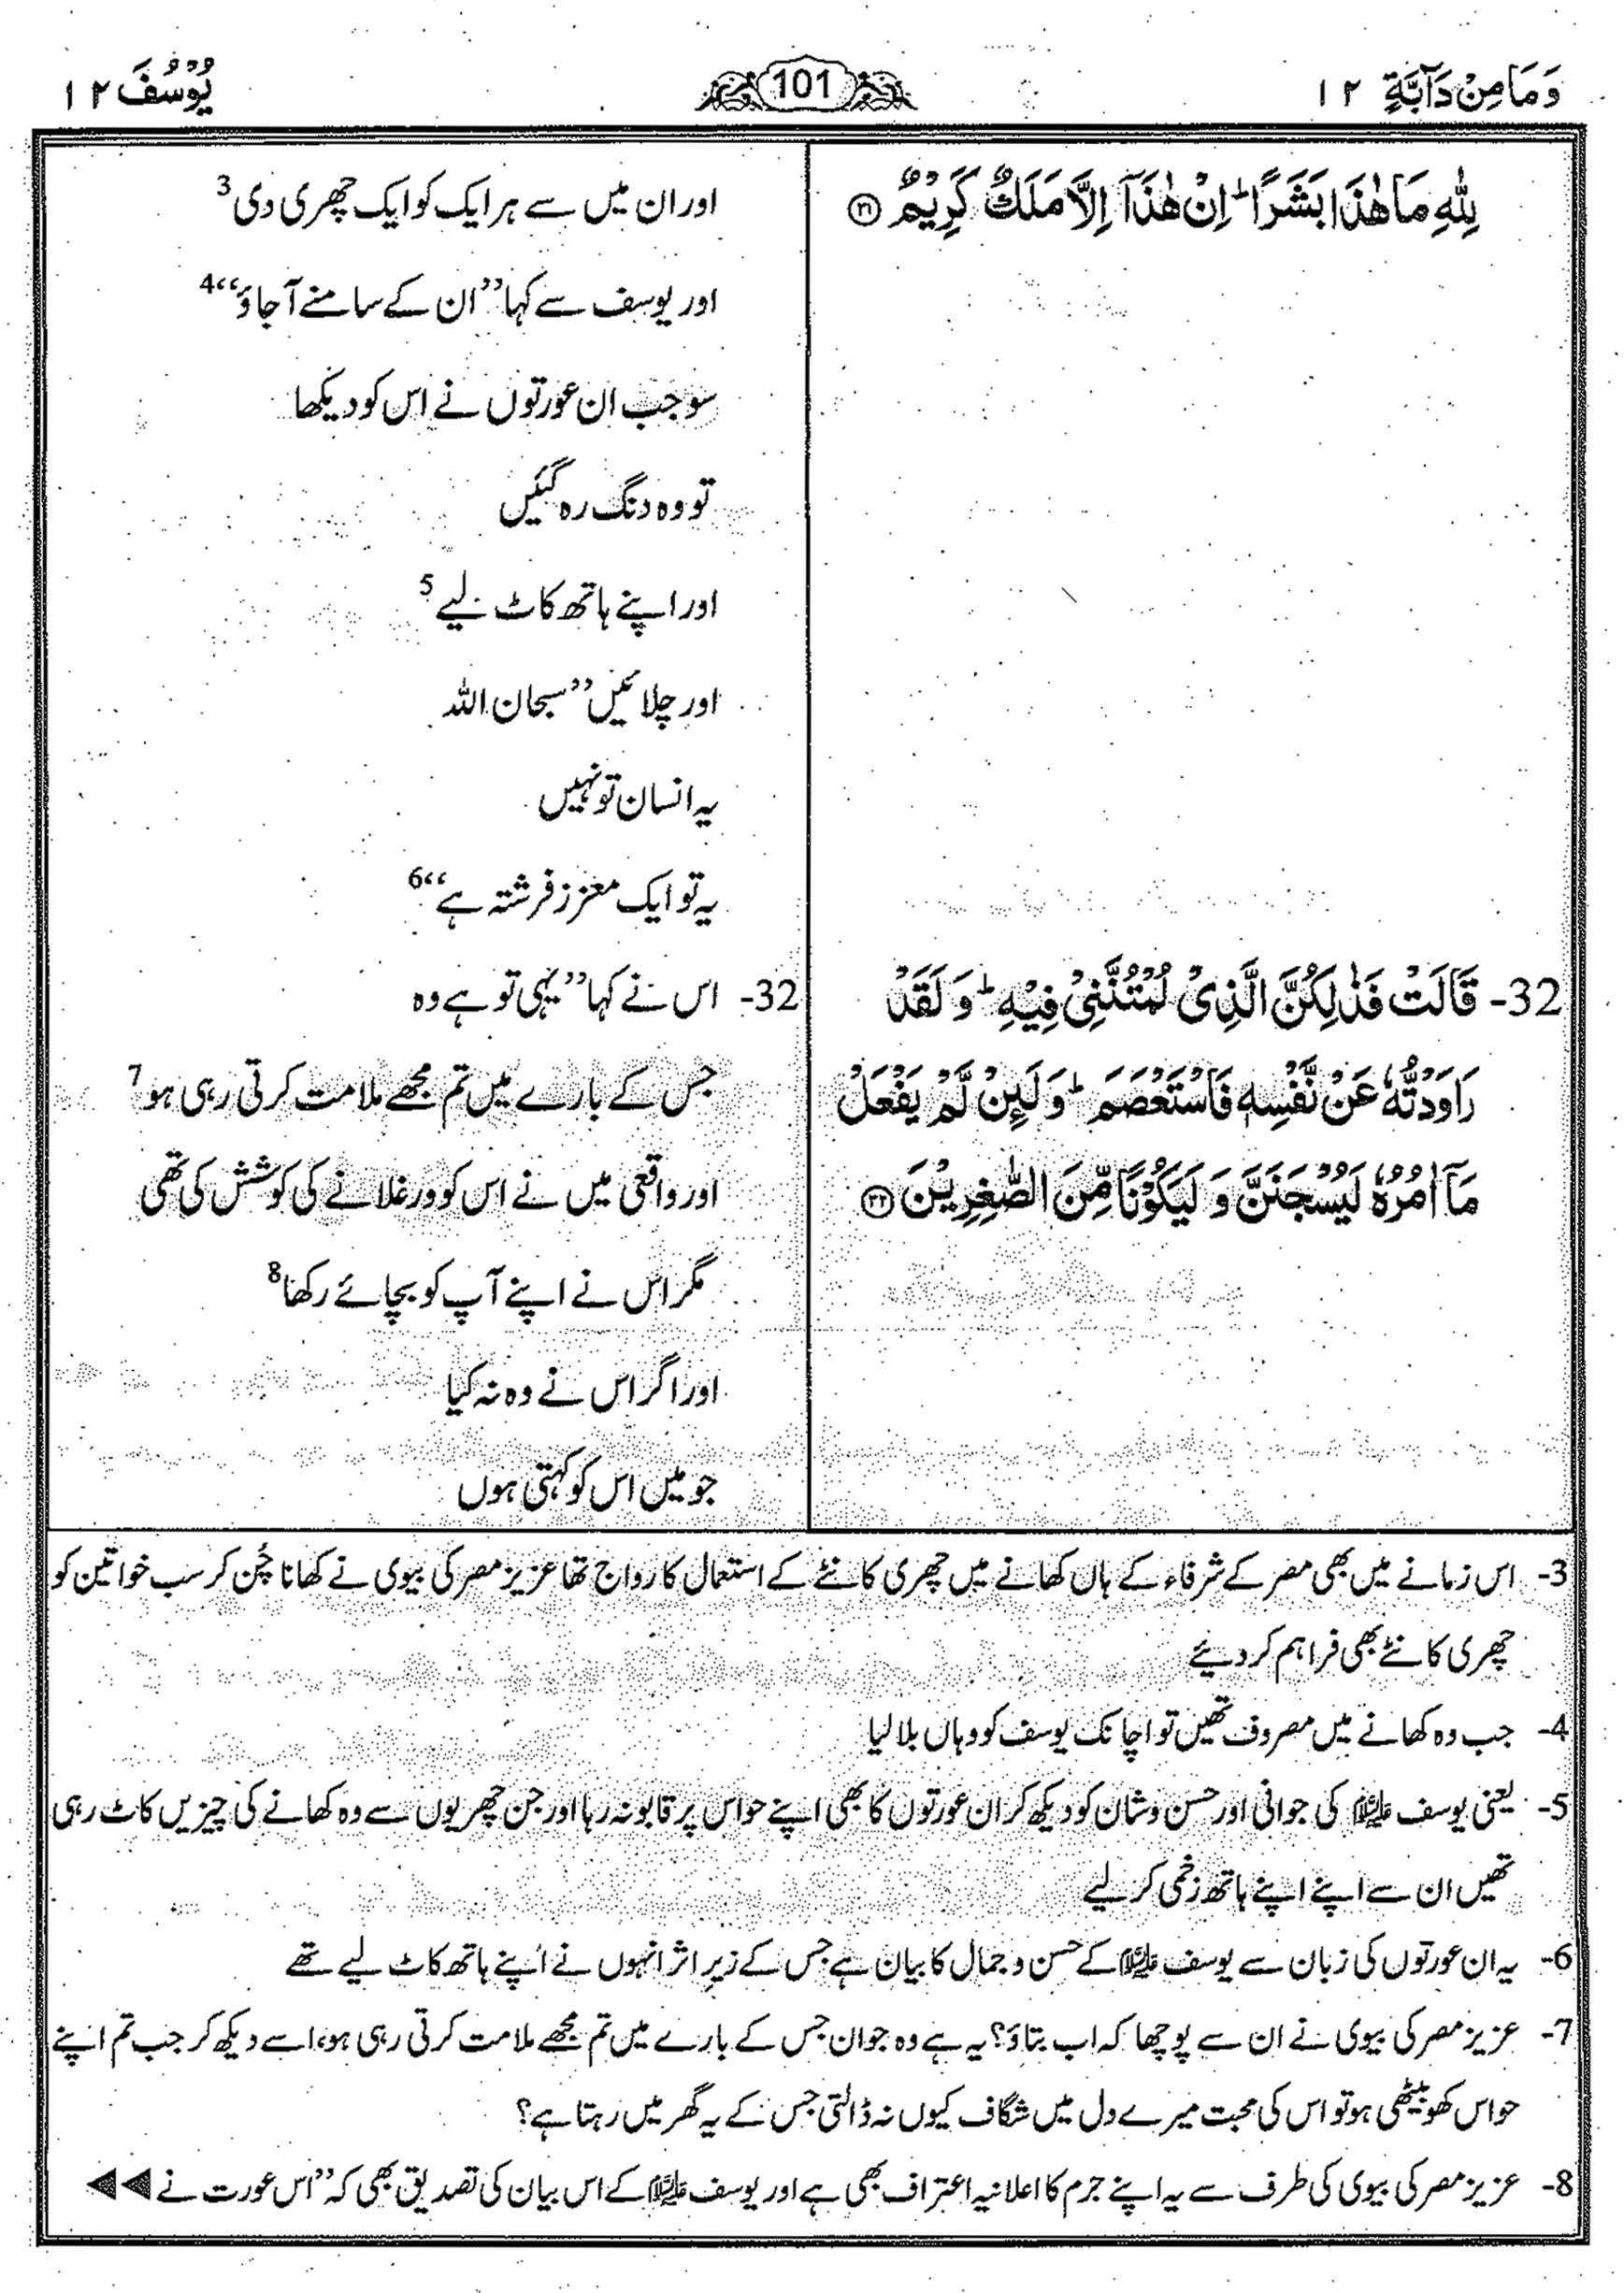 وَمَا مِنْ دَآبَّةٍ ١٢
101
يُوْسُفَ ١٢
لِلّٰهِ مَا هٰذَا بَشَرًا ؕ اِنْ هٰذَاۤ اِلَّا مَلَكٌ كَرِيْمٌ ﴿۳۱﴾
32- قَالَتْ فَذٰلِكُنَّ الَّذِيْ لُمْتُنَّنِيْ فِيْهِ ؕ وَ لَقَدْ
رَاوَدْتُّهٗ عَنْ نَّفْسِهٖ فَاسْتَعْصَمَ ؕ وَ لَىِٕنْ لَّمْ يَفْعَلْ
مَاۤ اٰمُرُهٗ لَيُسْجَنَنَّ وَ لَيَكُوْنًا مِّنَ الصّٰغِرِيْنَ ﴿۳۲﴾
اور ان میں سے ہر ایک کو ایک چھری دی 3
اور یوسف سے کہا ”ان کے سامنے آ جاؤ“ 4
سو جب ان عورتوں نے اس کو دیکھا
تو وہ دنگ رہ گئیں
اور اپنے ہاتھ کاٹ لیے 5
اور چلائیں ”سبحان اللہ
یہ انسان تو نہیں
یہ تو ایک معزز فرشتہ ہے“ 6
32- اس نے کہا ”یہی تو ہے وہ
جس کے بارے میں تم مجھے ملامت کرتی رہی ہو 7
اور واقعی میں نے اس کو ورغلانے کی کوشش کی تھی
مگر اس نے اپنے آپ کو بچائے رکھا 8
اور اگر اس نے وہ نہ کیا
جو میں اس کو کہتی ہوں
3- اس زمانے میں بھی مصر کے شرفاء کے ہاں کھانے میں چھری کانٹے کے استعمال کا رواج تھا عزیز مصر کی بیوی نے کھانا چُن کر سب خواتین کو
چھری کانٹے بھی فراہم کر دیئے
4- جب وہ کھانے میں مصروف تھیں تو اچانک یوسف کو وہاں بلا لیا
5- یعنی یوسف علیہ السلام کی جوانی اور حسن و شان کو دیکھ کر ان عورتوں کا بھی اپنے حواس پر قابو نہ رہا اور جن چھریوں سے وہ کھانے کی چیزیں کاٹ رہی
تھیں ان سے اپنے اپنے ہاتھ زخمی کر لیے
6- یہ ان عورتوں کی زبان سے یوسف علیہ السلام کے حسن و جمال کا بیان ہے جس کے زیر اثر انہوں نے اپنے ہاتھ کاٹ لیے تھے
7- عزیز مصر کی بیوی نے ان سے پوچھا کہ اب بتاؤ؟ یہ ہے وہ جوان جس کے بارے میں تم مجھے ملامت کرتی رہی ہو، اسے دیکھ کر جب تم اپنے
حواس کھو بیٹھی ہو تو اس کی محبت میرے دل میں شگاف کیوں نہ ڈالتی جس کے یہ گھر میں رہتا ہے؟
8- عزیز مصر کی بیوی کی طرف سے یہ اپنے جرم کا اعلانیہ اعتراف بھی ہے اور یوسف علیہ السلام کے اس بیان کی تصدیق بھی کہ ”اس عورت نے ◀◀